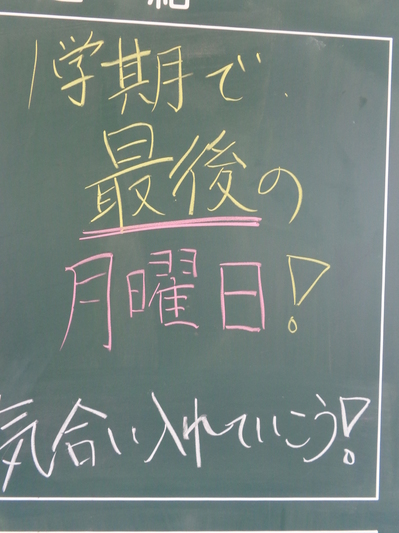 1学期で、
最後の
月曜日!
気合い入れていこう!